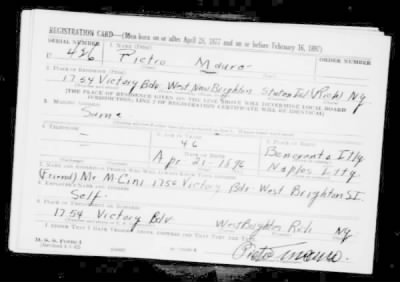 REGISTRATION CARD—(Men born on or after April 28, 1877 and on or before February 16, 1897)
SERIAL NUMBER 1. NAME (Print) ORDER NUMBER
U 426 Pietro Mauro
2. PLACE OF RESIDENCE (Print)
1754 Victory Bdv. West New Brighton Staten Isl. Rich NY
[THE PLACE OF RESIDENCE GIVEN ON THE LINE ABOVE WILL DETERMINE LOCAL BOARD
JURISDICTION; LINE 2 OF REGISTRATION CERTIFICATE WILL BE IDENTICAL]
3. MAILING ADDRESS
Same
4. TELEPHONE 5. AGE IN YEARS 6. PLACE OF BIRTH
46 Benevento Itly
DATE OF BIRTH
Apr. 21. 1896 Naples Itly
7. NAME AND ADDRESS OF PERSON WHO WILL ALWAYS KNOW YOUR ADDRESS
(Friend) Mr M. Cini 1754 Victory Bdv. West Brighton S.I.
8. EMPLOYER'S NAME AND ADDRESS
Self.
9. PLACE OF EMPLOYMENT OR BUSINESS
1754 Victory Bdv West Brighton Rich NY
I AFFIRM THAT I HAVE VERIFIED ABOVE ANSWERS AND THAT THEY ARE TRUE.
D. S. S. Form 1
Pietro Mauro